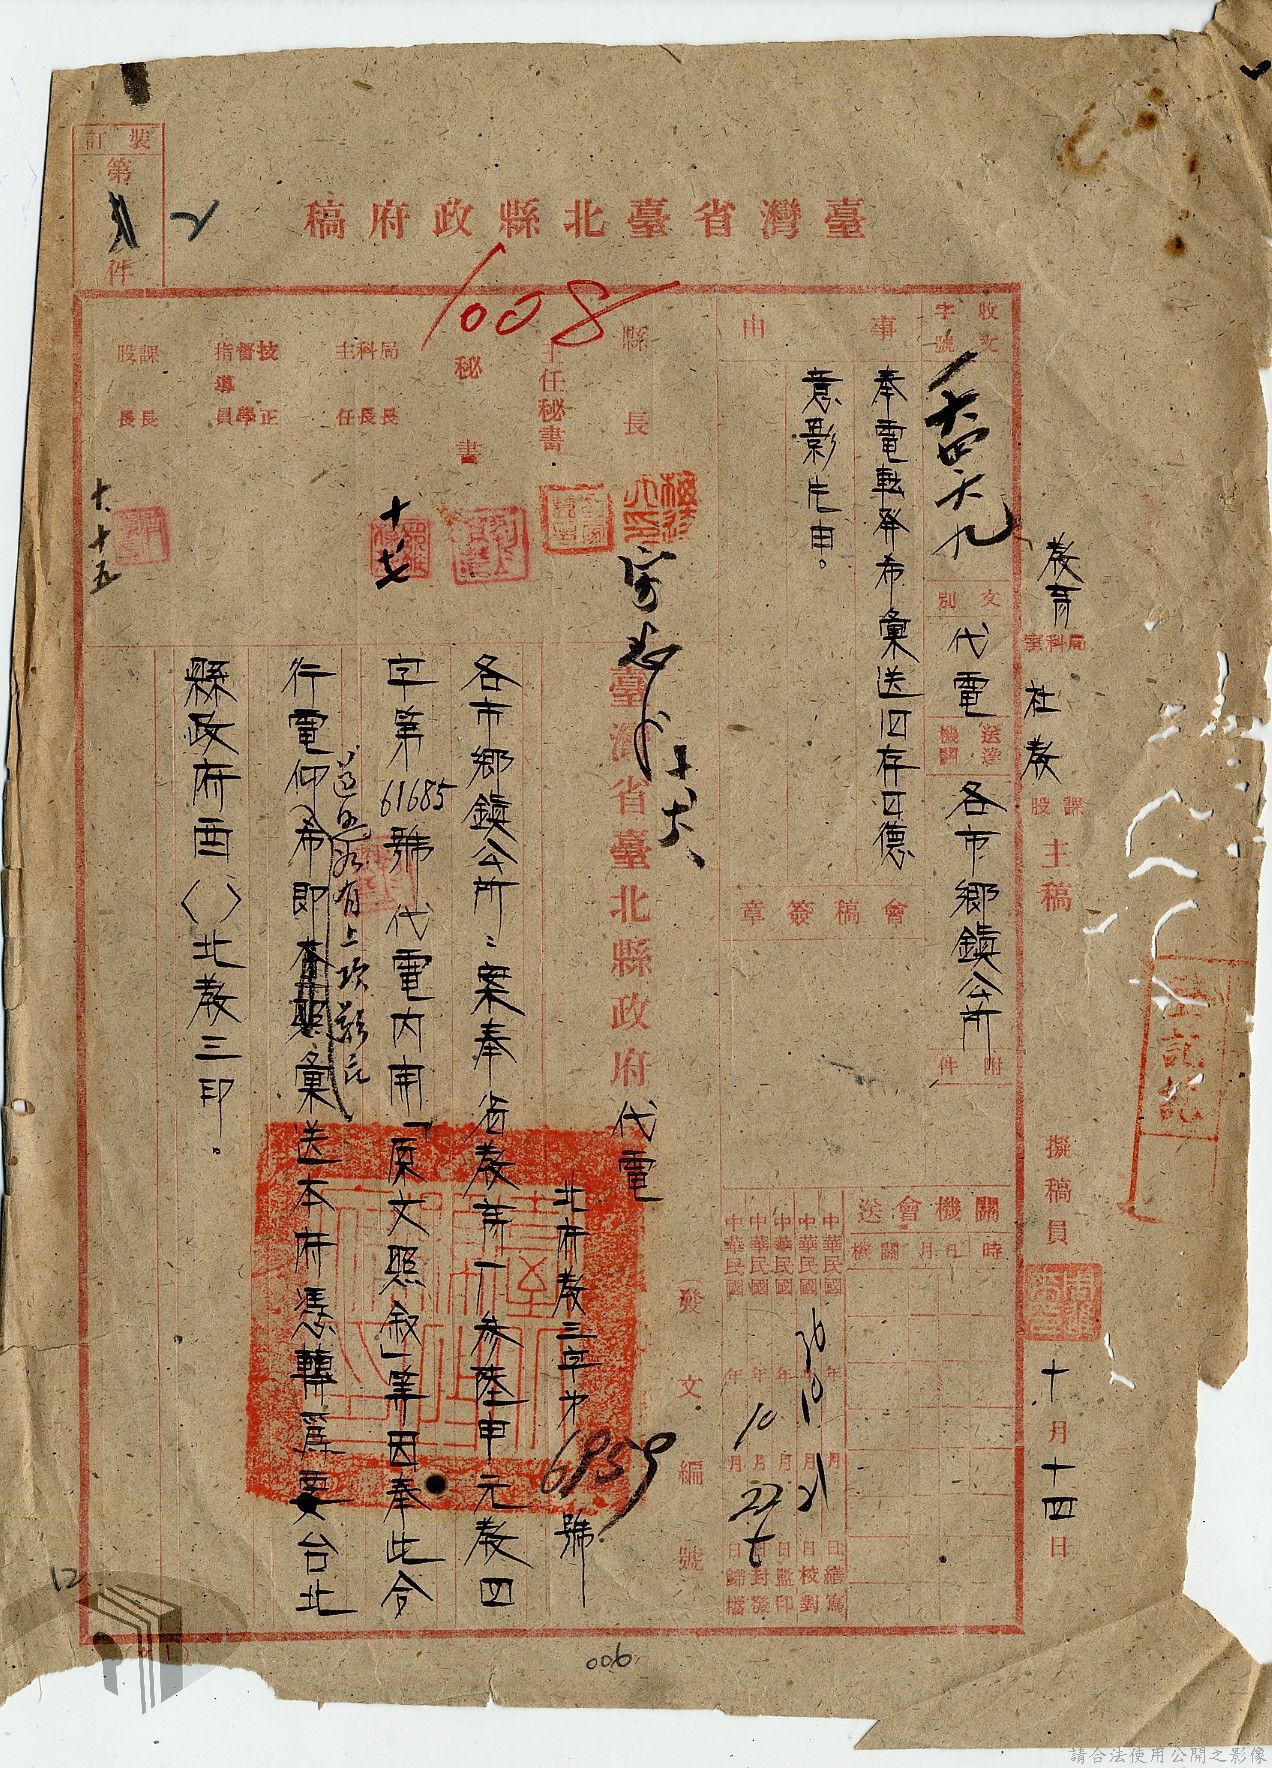 裝訂
第
件
2
臺灣省臺北縣政府稿
1008
教育
局科室
社教
課股
主稿
擬稿員
十月十四日
收文字號
文別
代電
送達機關
各市鄉鎮公所
附件
事由
奉電轉發希彙送日存日德
意影片由。
會稿簽章
會送機關
時
月日
機關
縣長
主任秘書
秘書
局科主
長長任
技督指導
正學員
課股
長長
十七
十、十五
中華民國 年 月 日繕寫
中華民國36年10月21日校對
中華民國 年 月 日監印
中華民國 年10月22日封發
中華民國 年 月 日歸檔
發文編號
臺灣省臺北縣政府代電
北府教三字第6959號
各市鄉鎮公所：案奉省教育廳參陸申元教四
字第61685號代電內開「原文照敘」等因奉此合
行電仰希即彙送本府憑轉為要台北
有上項影片
縣政府酉（）北教三印。
登記訖
12
006
請合法使用公開之影像